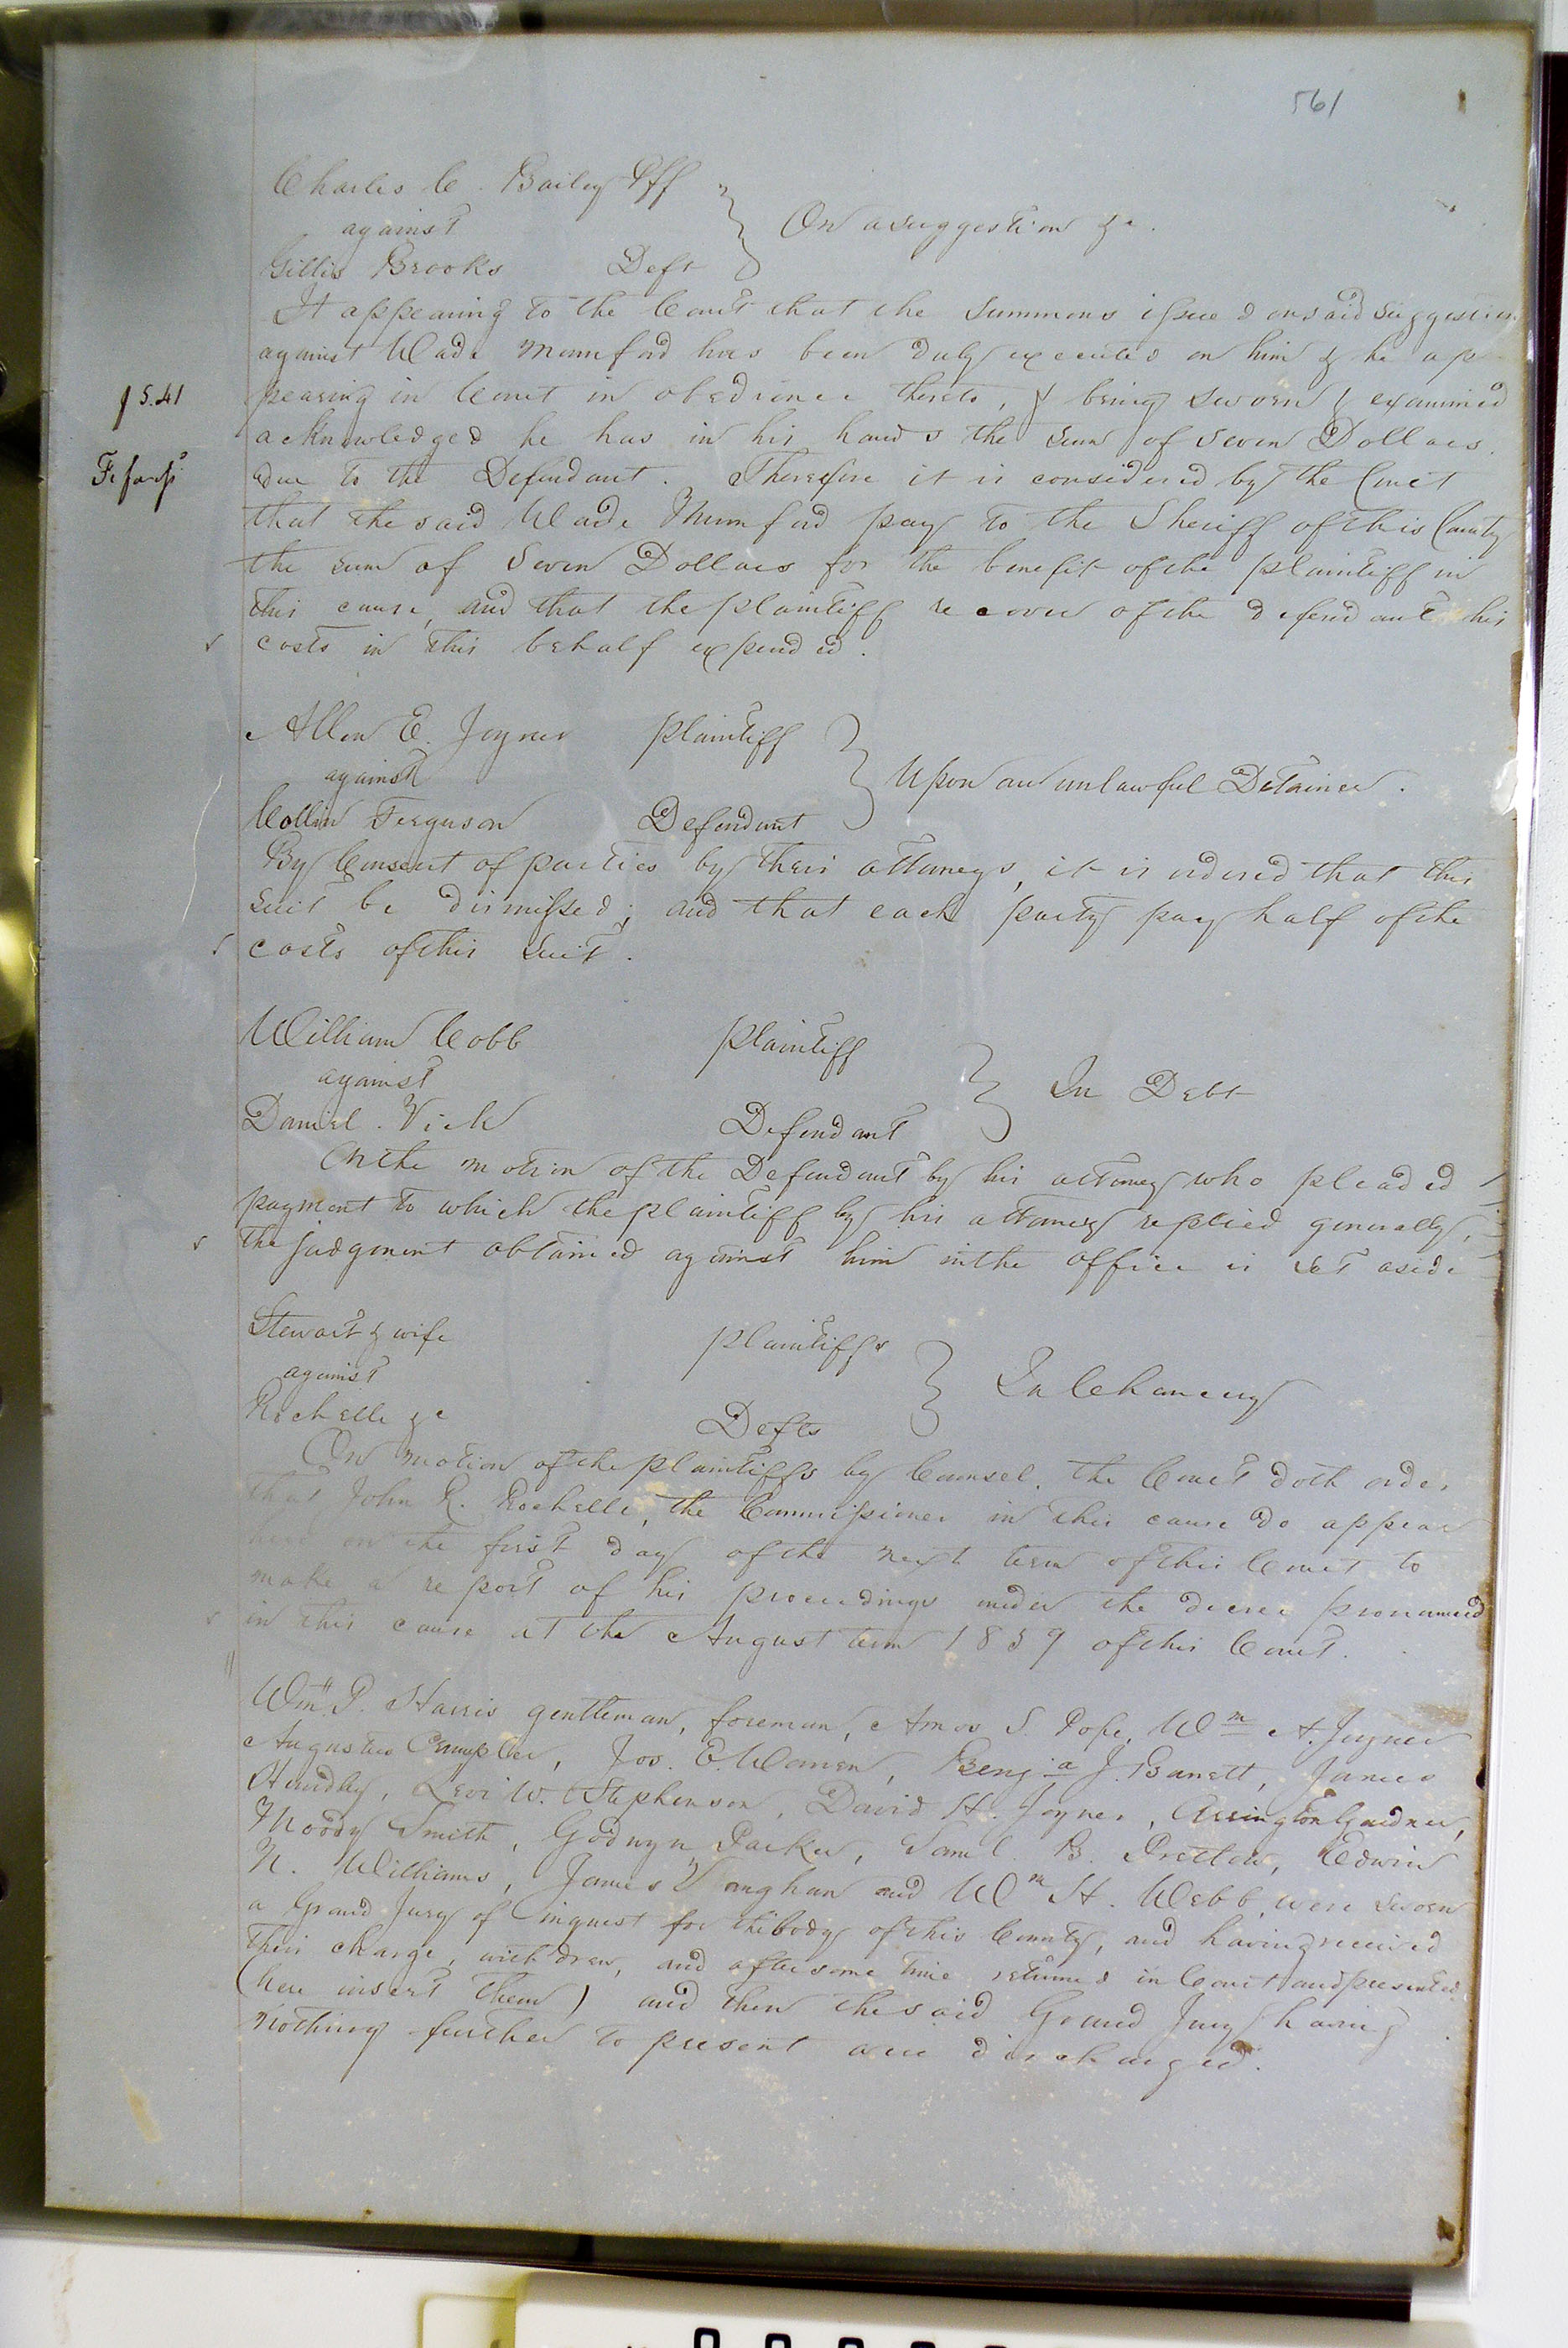 561
Charles C. Bailey Plff
against
On a suggestion &c.
Gillis Brooks Deft
It appearing to the Court that the Summons issued on said suggestion
against Wade Mumford has been duly executed on him & he ap
pearing in Court in obedience thereto, & being sworn & examined
$5.41
acknowledged he has in his hands the sum of seven Dollars
Fi fa
due to the Defendant. Therefore it is considered by the Court
that the said Wade Mumford pay to the Sheriff of this County
the sum of Seven Dollars for the benefit of the plaintiff in
this cause, and that the plaintiff recover of the defendant his
costs in this behalf expended.
Allen E. Joyner plaintiff
against
Upon an unlawful Detainer.
Collin Ferguson Defendant
By Consent of parties by their attorneys, it is ordered that this
suit be dismissed; and that each party pay half of the
costs of this suit.
William Cobb plaintiff
against
In Debt
Daniel Vick Defendant
On the motion of the Defendant by his attorney who pleaded
payment to which the plaintiff by his attorney replied generally,
the judgment obtained against him in the office is set aside
Stewart & wife plaintiffs
against
In Chancery
Rochelle &c Defts
On motion of the plaintiffs by Counsel, the Court doth order
that John R. Rochelle, the Commissioner in this cause do appear
here on the first day of the next term of this Court to
make a report of his proceedings under the decree pronounced
in this cause at the August term 1859 of this Court.
Wm. P. Harris gentleman, foreman, Amos S. Pope, Wm A. Joyner
Augustus Crumpler, Jos. E. Warren, Benja J. Barrett, James
Handby, Levi W. Stephenson, David H. Joyner, Arrington Gardner,
Moody Smith, Godwyn Parker, Saml. B. Pretlow, Edwin
N. Williams, James Vaughan and Wm H. Webb, were sworn
a Grand Jury of inquest for the body of this County, and having received
their charge, withdrew, and after some time returned in Court and presented
(here insert them) and then the said Grand Jury having
nothing further to present were discharged.